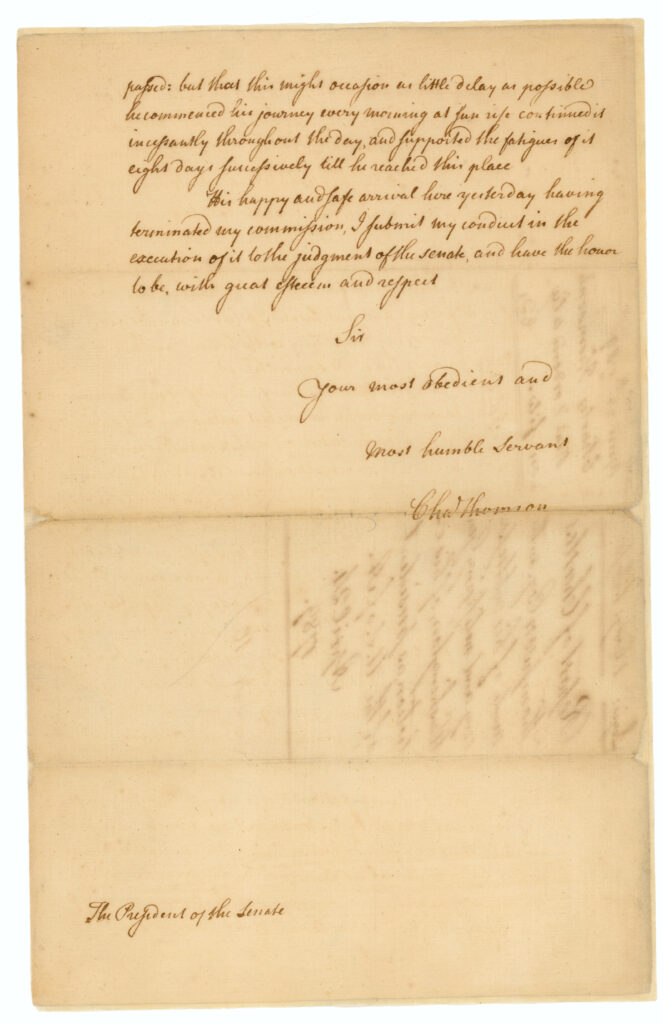 passed: but that this might occasion as little delay as possible
he commenced his journey every morning at sun rise continued it
incessantly throughout the day, and supported the fatigues of it
eight days successively till he reached this place
His happy and safe arrival here yesterday having
terminated my commission, I submit my conduct in the
execution of it to the judgment of the senate, and have the honor
to be, with great esteem and respect
Sir
Your most obedient and
Most humble Servant
Chas Thomson
The President of the Senate